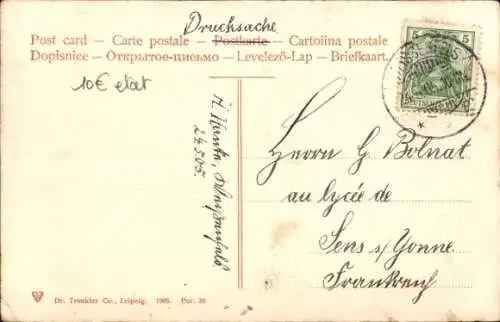 Drucksache
Post card – Carte postale – Postkarte – Cartolina postale
Dopisnice – Открытое-письмо – Levelező-Lap – Briefkaart.
10€ etat
5 5
Herrn G. Bolnat
au lycée de
Sens s/Yonne
Frankreich
24505.
Dr. Trenkler Co., Leipzig. 1905. Pur. 39